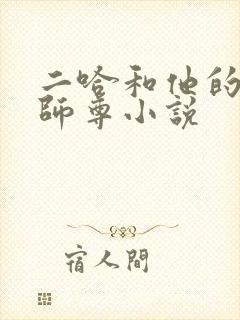 二哈和他的
師尊小說
宿人間